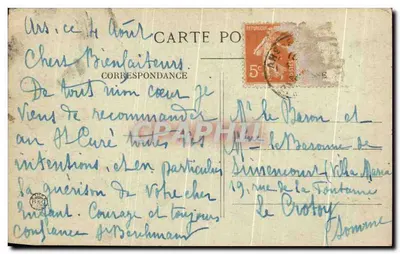 Ars, ce 4 Août
CARTE PO
Chers Bienfaiteurs.
CORRESPONDANCE
De tout mon cœur je
viens de recommander
au St Curé toutes vos
intentions, et en particulier
la guérison de votre cher
Enfant. Courage et toujours
confiance
5c
Mr le Baron et
Me la Baronne de
Simencourt (Villa Marie
19, rue de la Fontaine
Le Crotoy
Somme
CPHRC